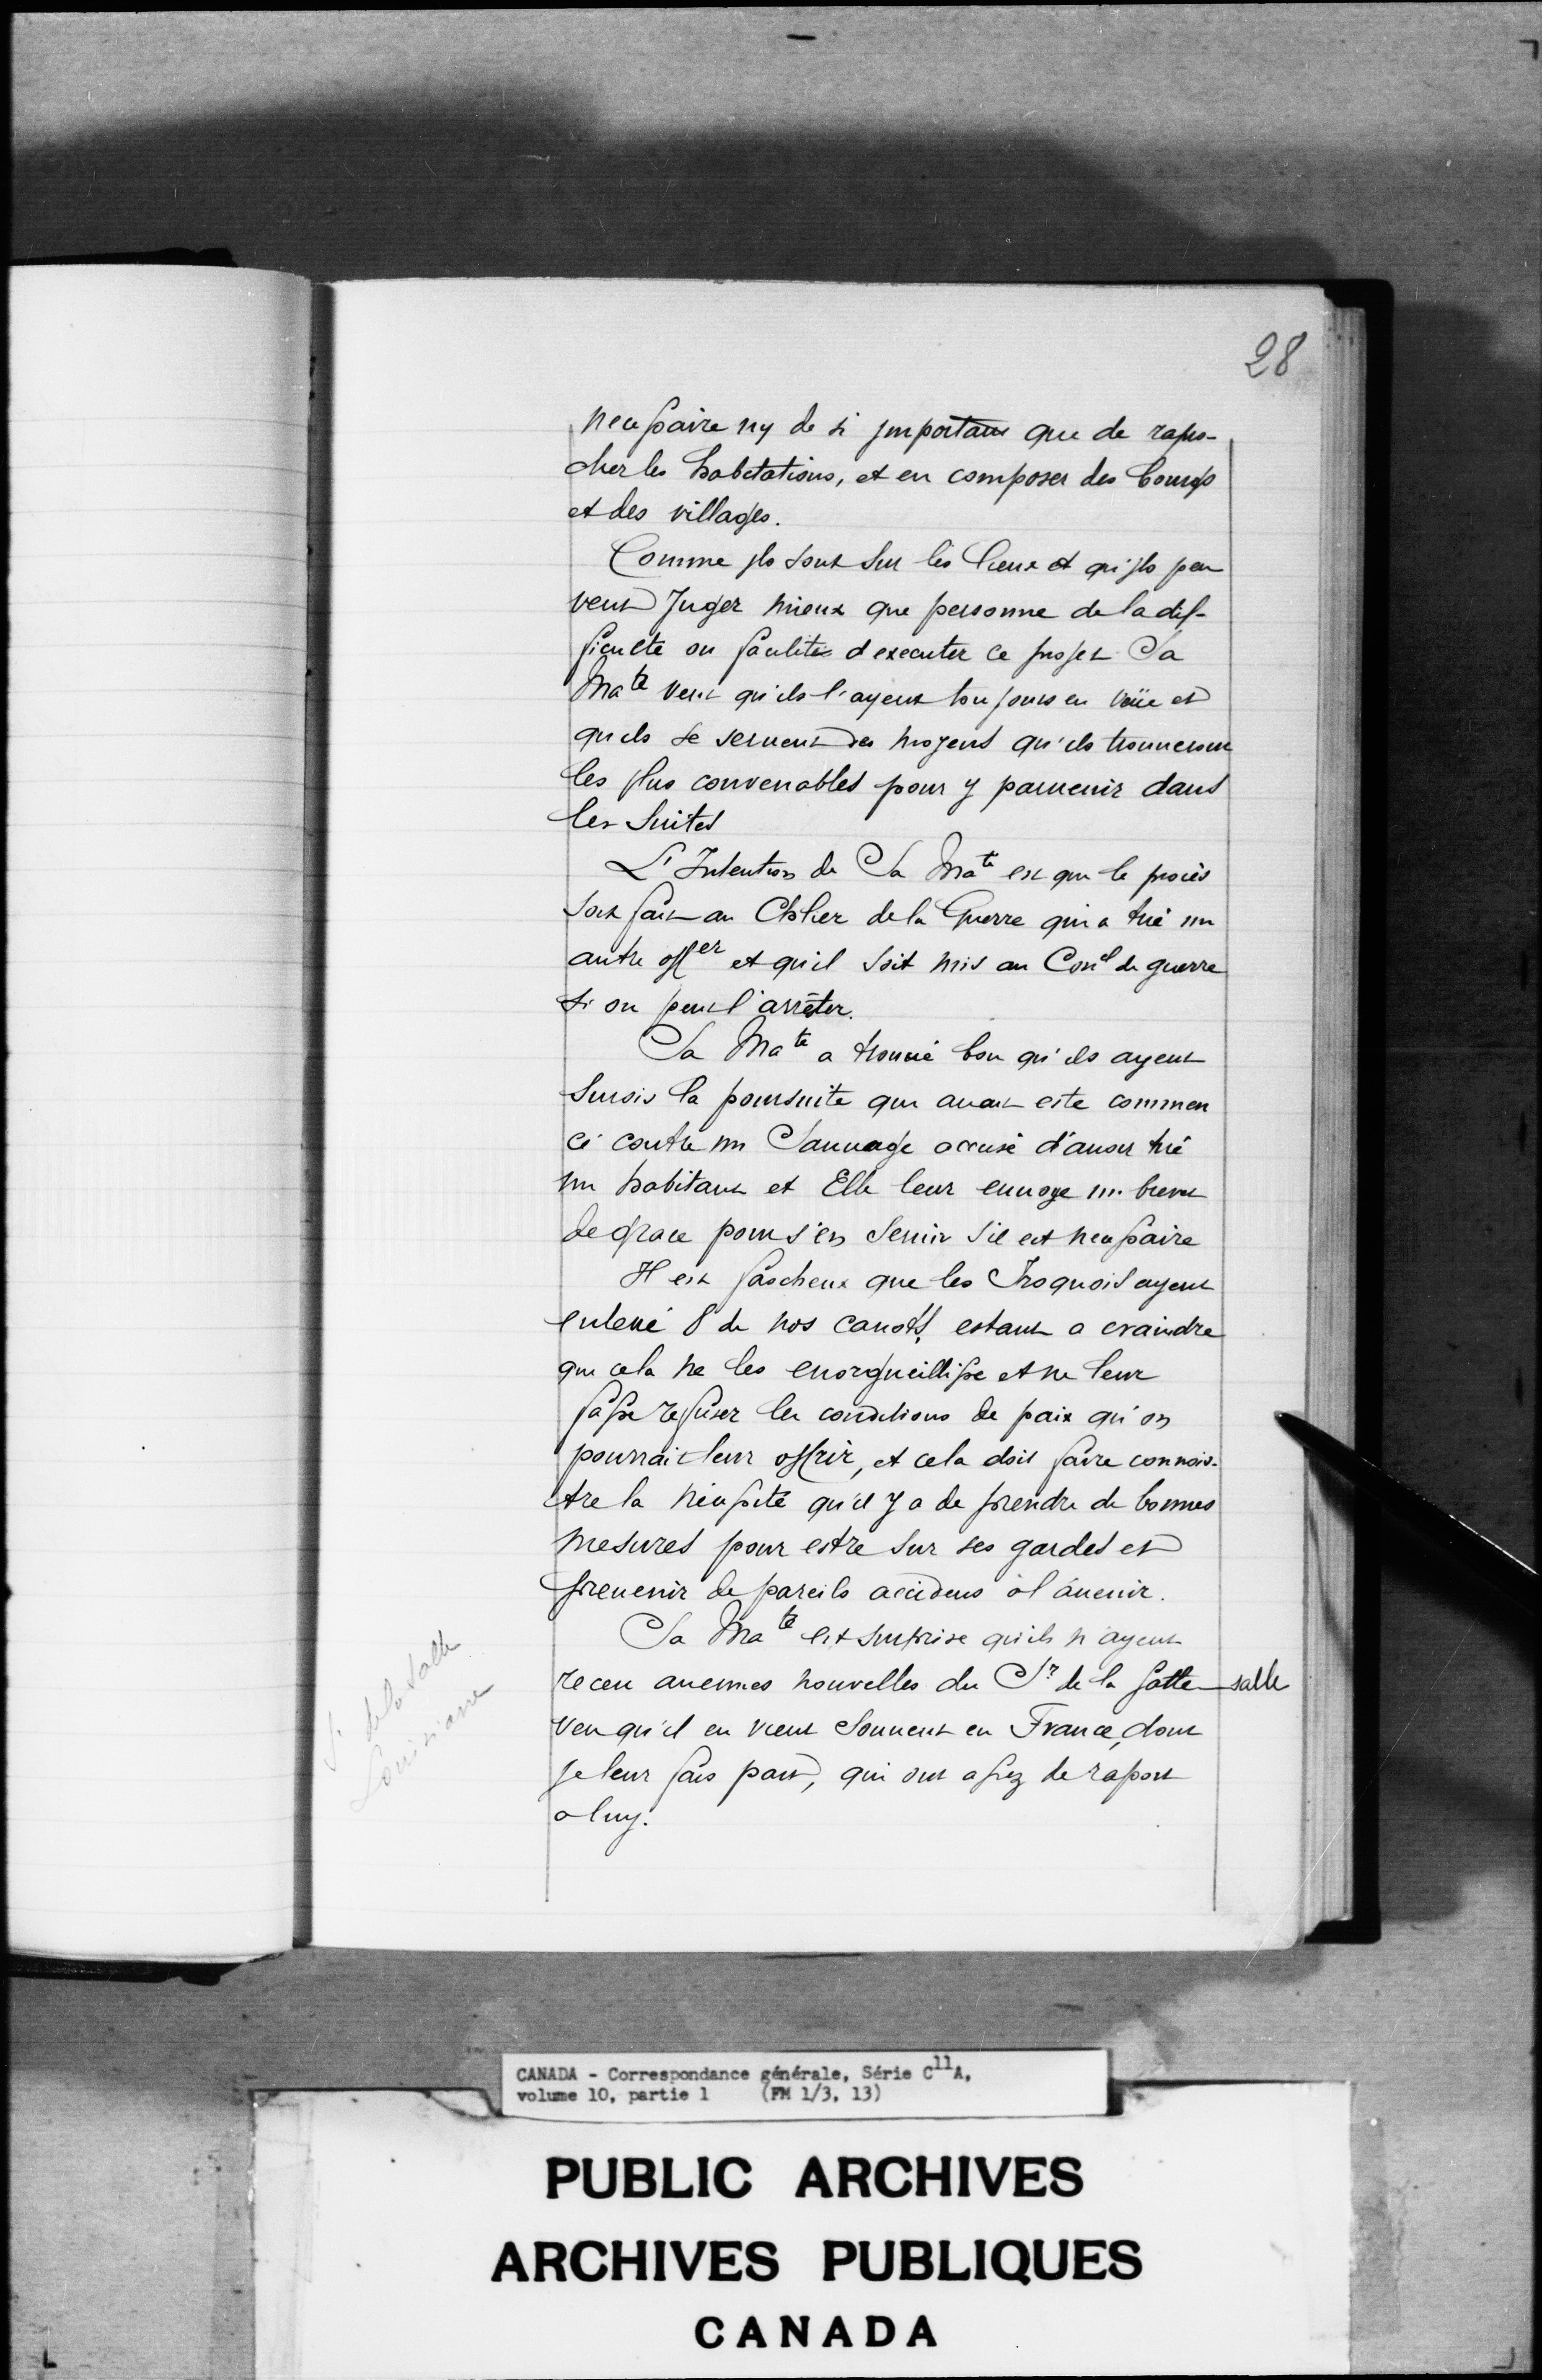 28
necessaire ny de si jmportant que de rapro-
cher les habitations, et en composer des bourgs
et des villages.
Comme jls sont sur les lieux et qu'jls peu
vent Juger mieux que personne de la dif-
ficulté ou facilités d'executer ce projet Sa
Ma té veut qu'ils l'ayent toujours en vüe et
quils se seruent des moyens qu'ils trouueront
les plus convenables pour y paruenir dans
les suites
L'Intention de Sa Ma té est que le procès
soit fait au Chlier de la Guerre qui a tué un
autre offer et qu'il soit mis au Conel de guerre
si on peut l'arrêter.
Sa Ma té a trouué bon qu'ils ayent
sursis la poursuite qui auait esté commen
cé contre un Sauuage accusé d'auoir tué
un habitant et Elle leur enuoye un breuet
de grace pour s'en seruir s'il est necessaire
Il est fascheux que les Iroquois ayent
enleué 8 de nos canots, estant a craindre
que cela ne les enorgueillisse et ne leur
fasse refuser les conditions de paix qu'on
pourrait leur offrir, et cela doit faire connois-
tre la nécessité qu'il y a de prendre de bonnes
mesures pour estre sur ses gardes et
preuenir de pareils accidens à l'auenir.
Sa Ma té est surprise qu'ils n'ayent
receu aucunes nouvelles du Sr de la Salle salle
veu qu'il en vient souuent en France, dont
je leur fais part, qui ont assez de raport
a luy.
S. de la Salle
Louisiane
CANADA - Correspondance générale, Série C11A,
volume 10, partie 1 (FM 1/3, 13)
PUBLIC ARCHIVES
ARCHIVES PUBLIQUES
CANADA